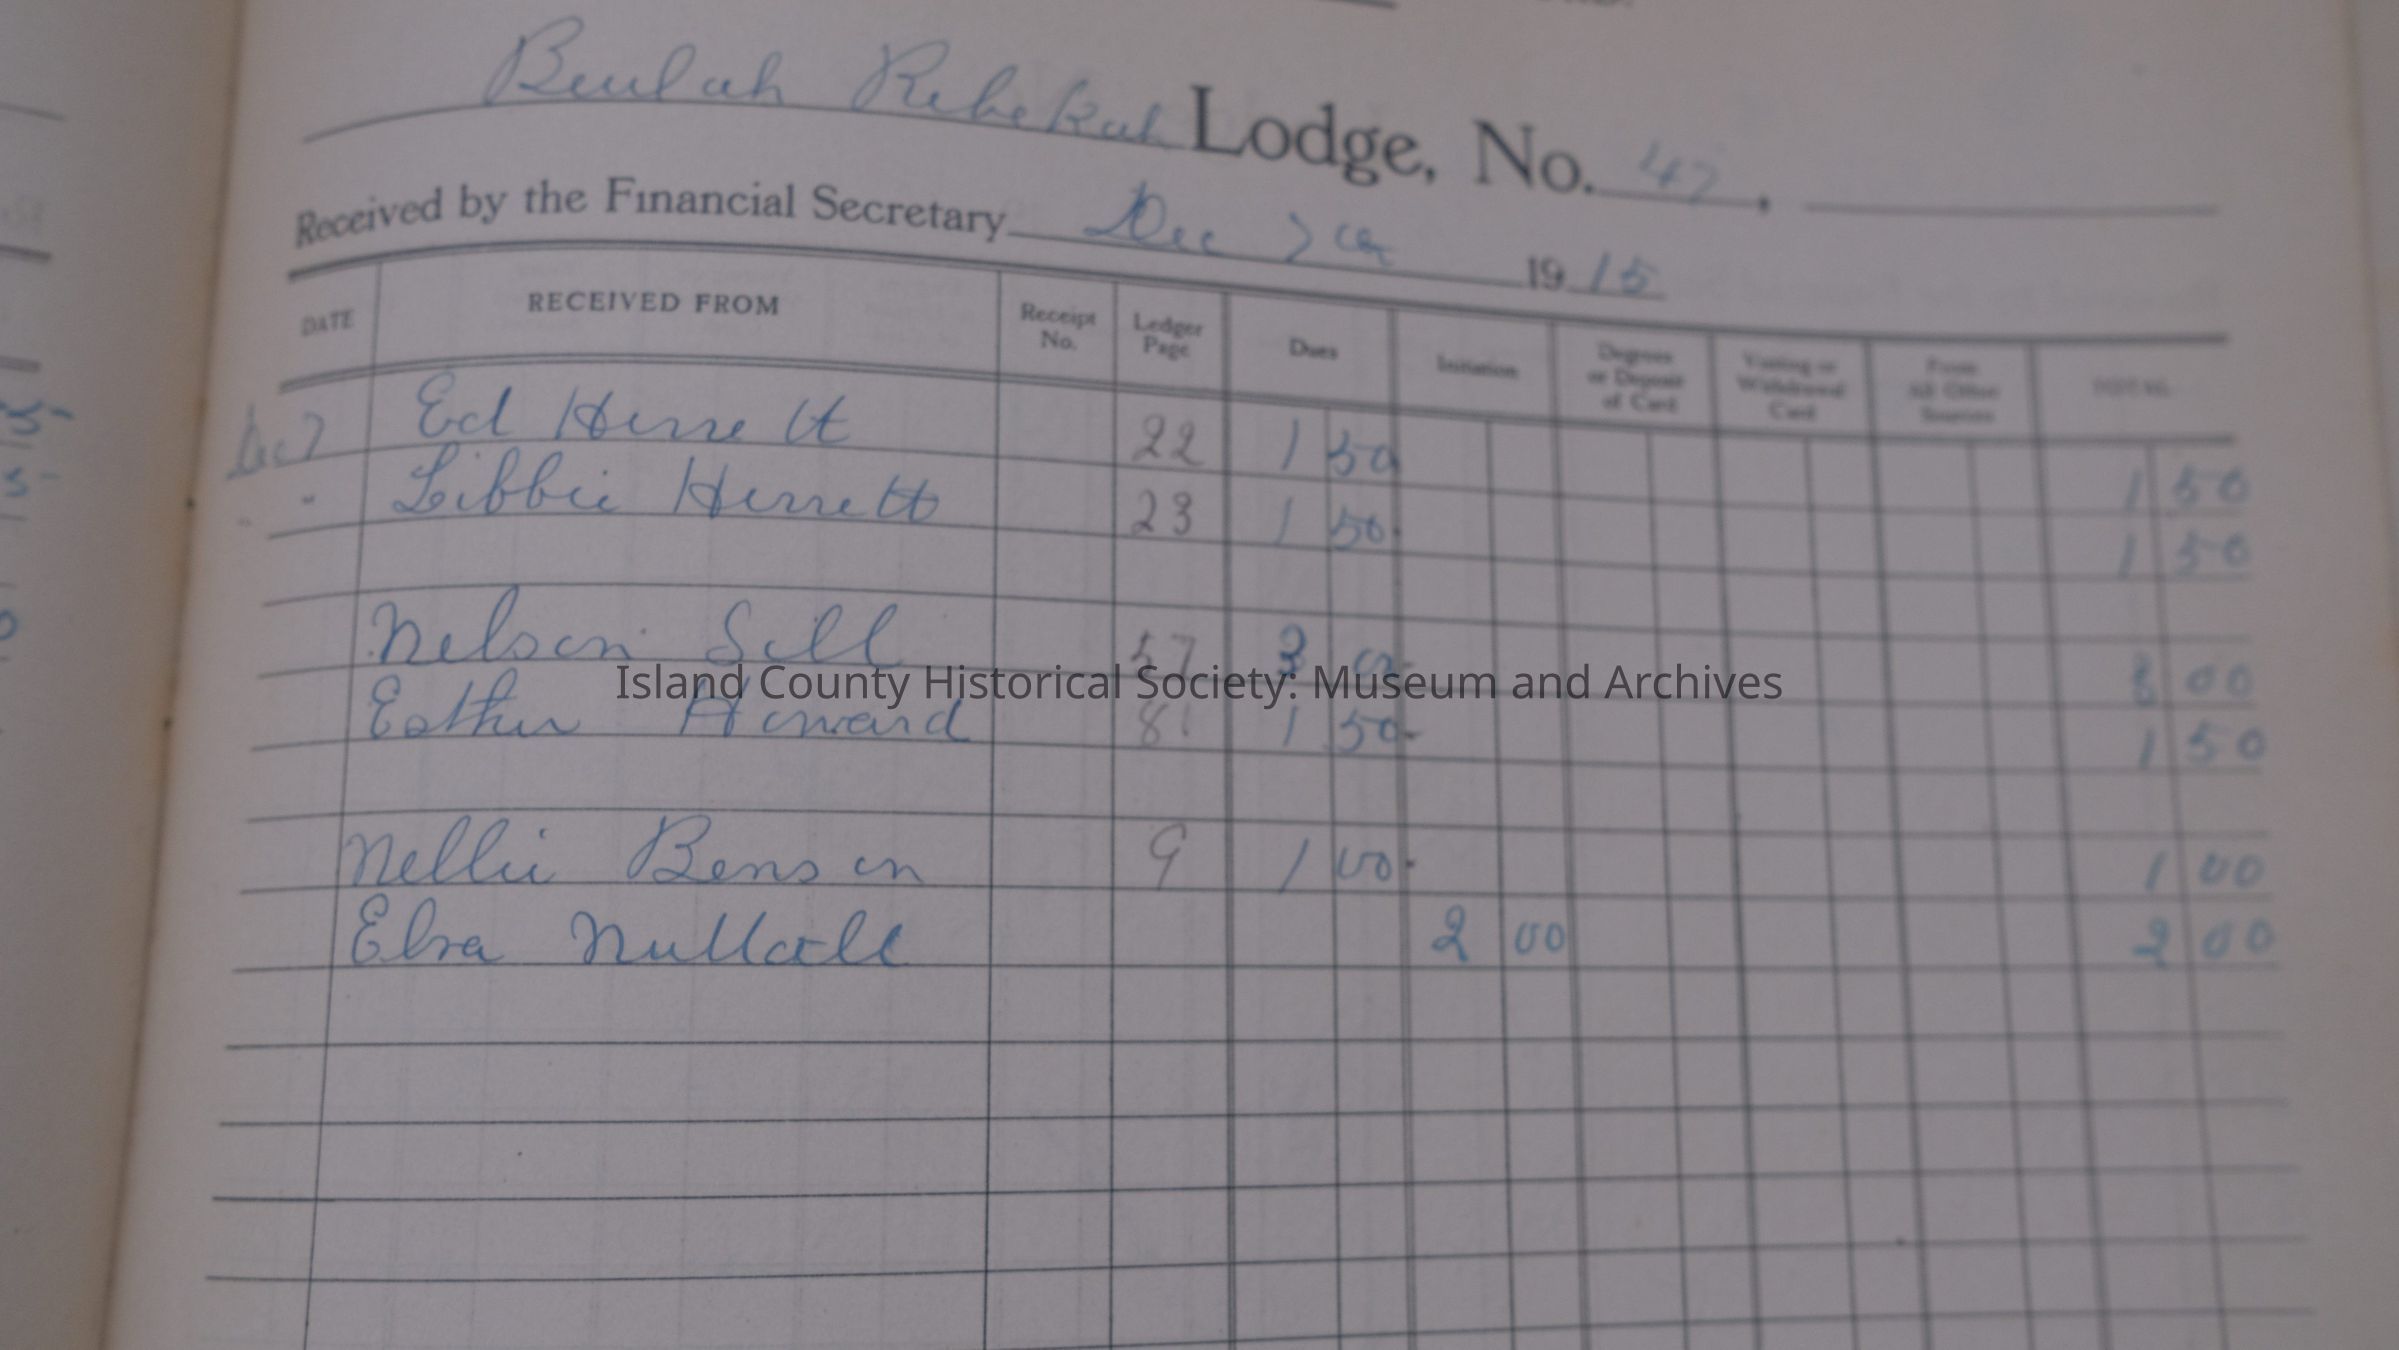 Beulah Rebekah Lodge, No. 47,
Received by the Financial Secretary Dec 7th 1915
DATE RECEIVED FROM Receipt No. Ledger Page Dues Initiation Degrees or Deposit of Card Visiting or Withdrawal Card From All Other Sources TOTAL
Dec 7 Ed Herrett 22 1 50 1 50
" Libbie Herrett 23 1 50 1 50
Nelson Sill 57 3 00 3 00
Island County Historical Society: Museum and Archives
Esther Howard 81 1 50 1 50
Nellie Benson 9 1 00 1 00
Elva Nuttall 2 00 2 00